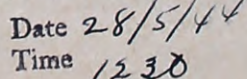 Date 28/5/44
Time 1230